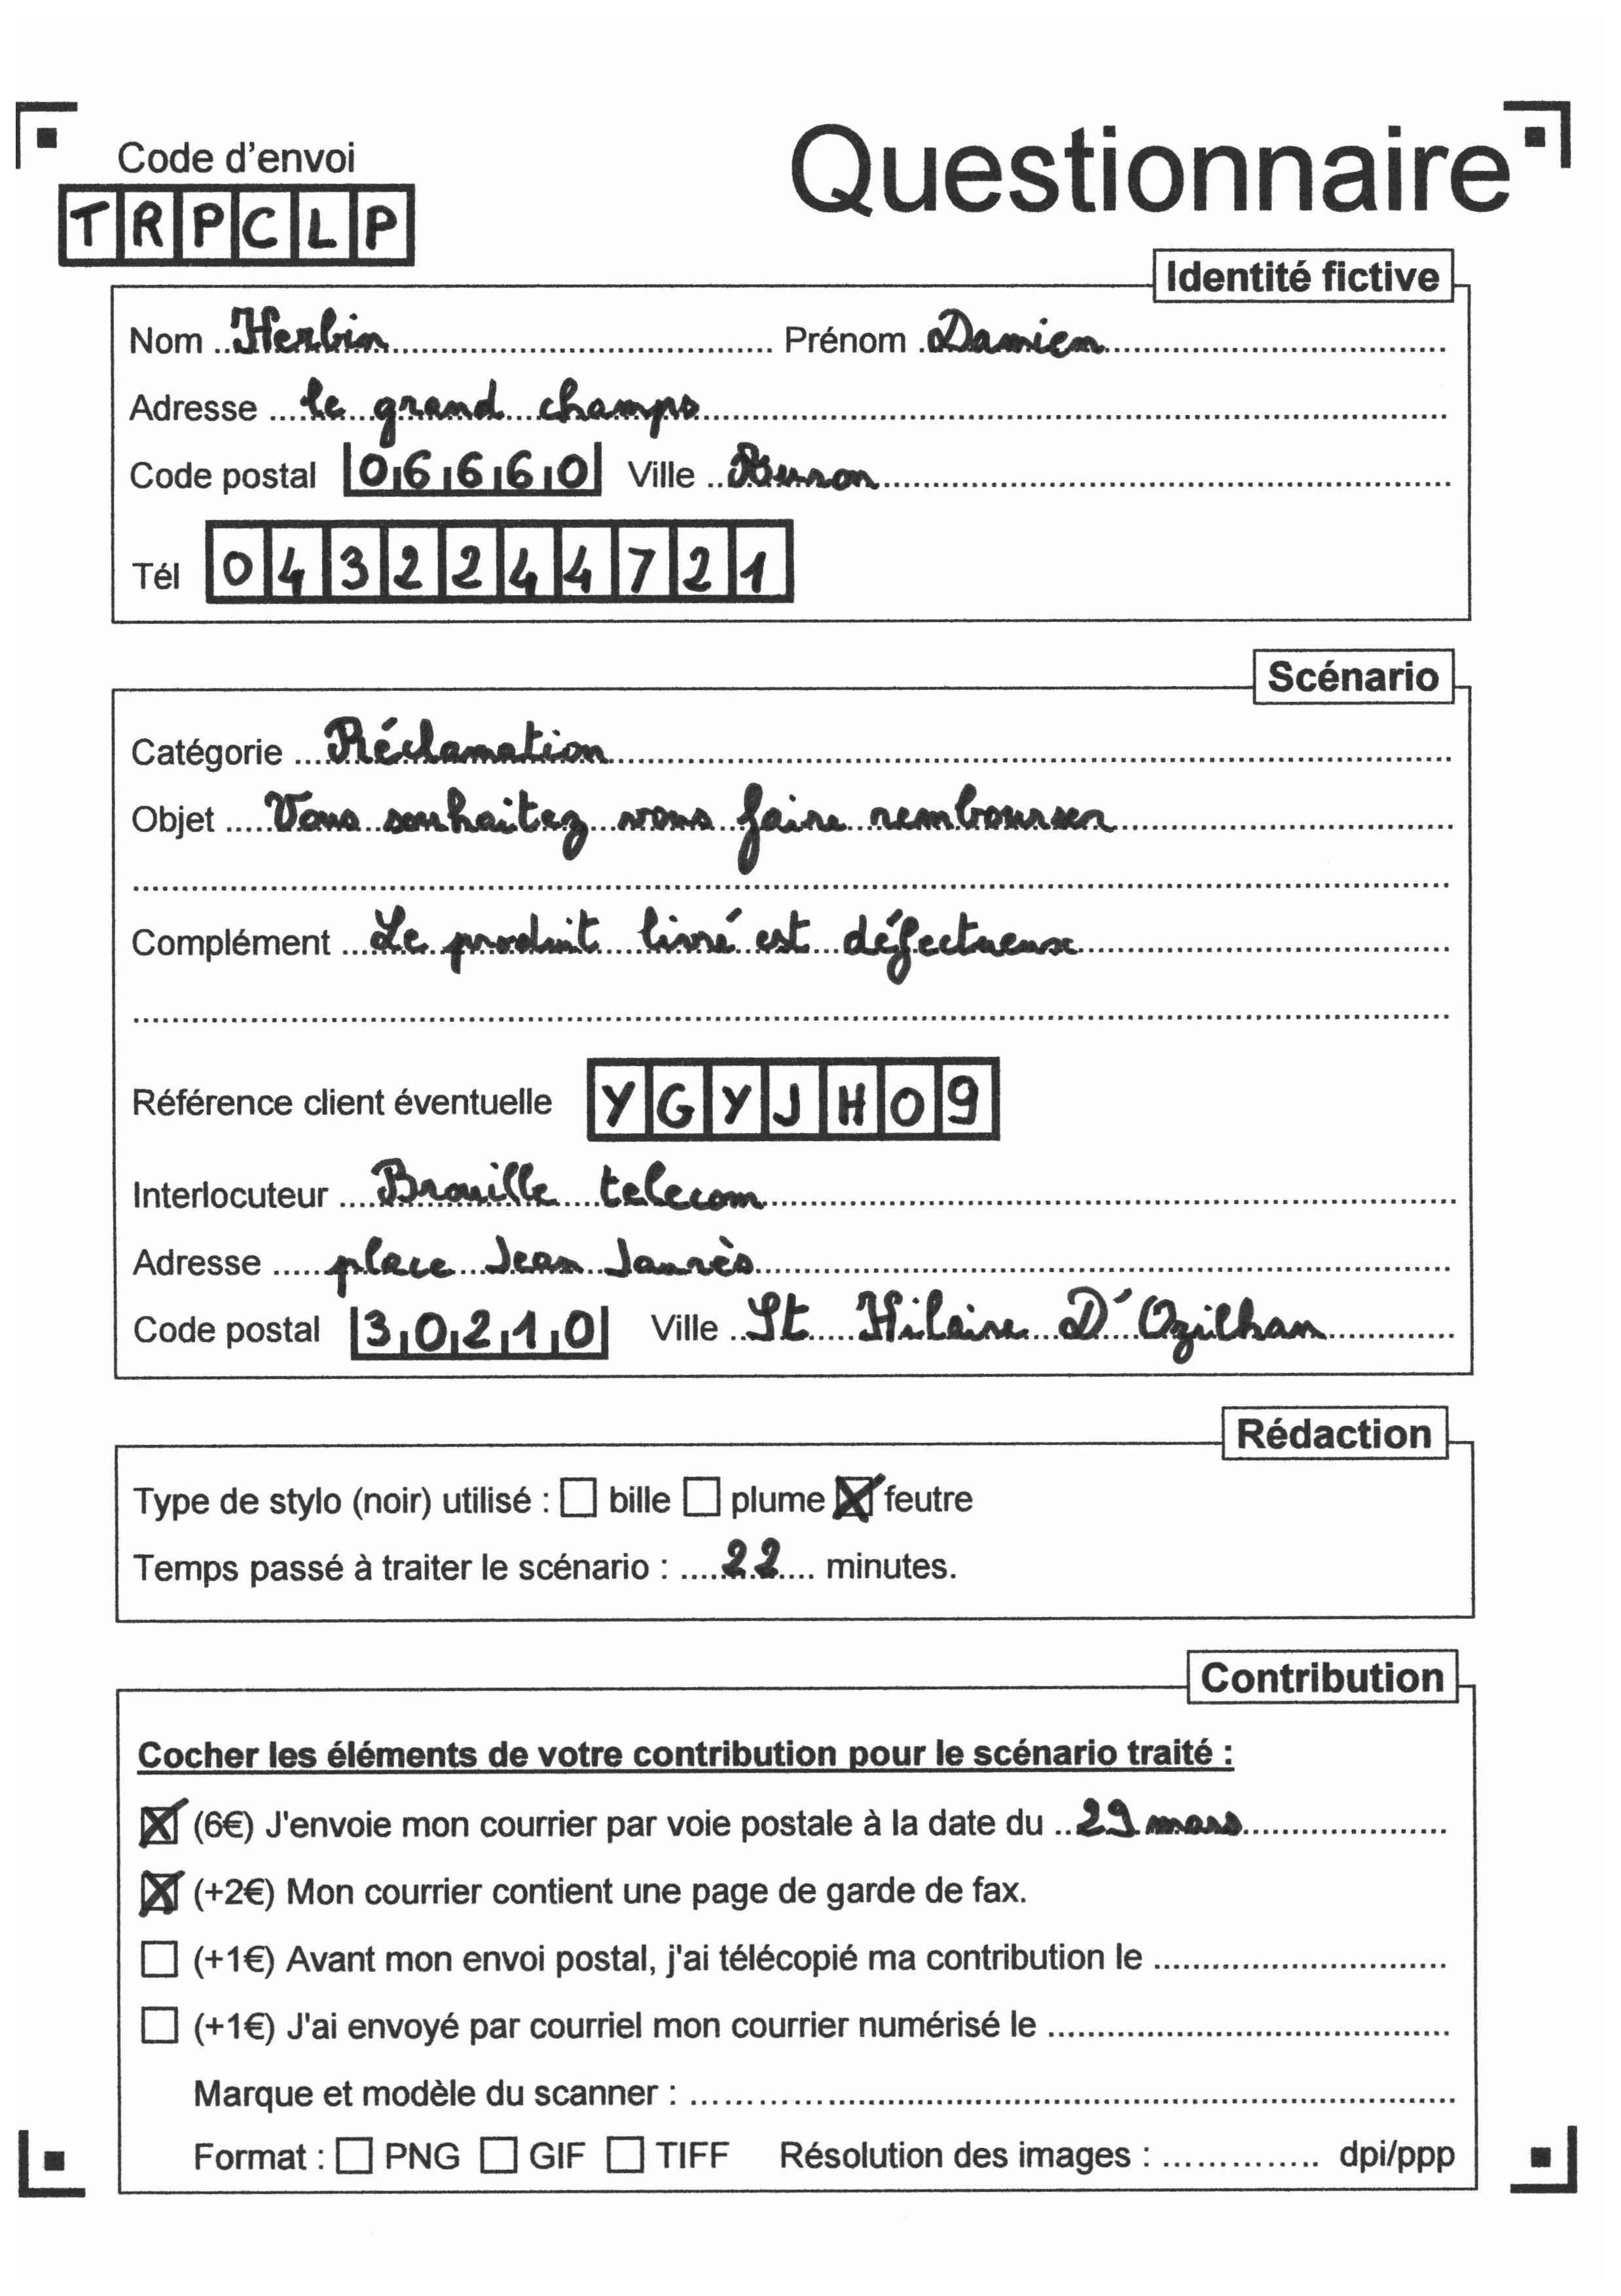 Questionnaire
Code d'envoi
TRPCLP
Identité fictive
Nom Herbin Prénom Damien
Adresse le grand champs
Code postal 06660 Ville
Tél 0432244721
Scénario
Catégorie Réclamation
Objet Vous souhaitez vous faire rembourser
Complément Le produit livré est défectueux
Référence client éventuelle YGYJH09
Interlocuteur Brouille telecom
Adresse place Jean Jaurès
Code postal 30210 Ville St Hilaire D'Ozilhan
Rédaction
Type de stylo (noir) utilisé : bille plume feutre
Temps passé à traiter le scénario : 22 minutes.
Contribution
Cocher les éléments de votre contribution pour le scénario traité :
(6€) J'envoie mon courrier par voie postale à la date du 29 mars
(+2€) Mon courrier contient une page de garde de fax.
(+1€) Avant mon envoi postal, j'ai télécopié ma contribution le
(+1€) J'ai envoyé par courriel mon courrier numérisé le
Marque et modèle du scanner :
Format : PNG GIF TIFF Résolution des images : dpi/ppp